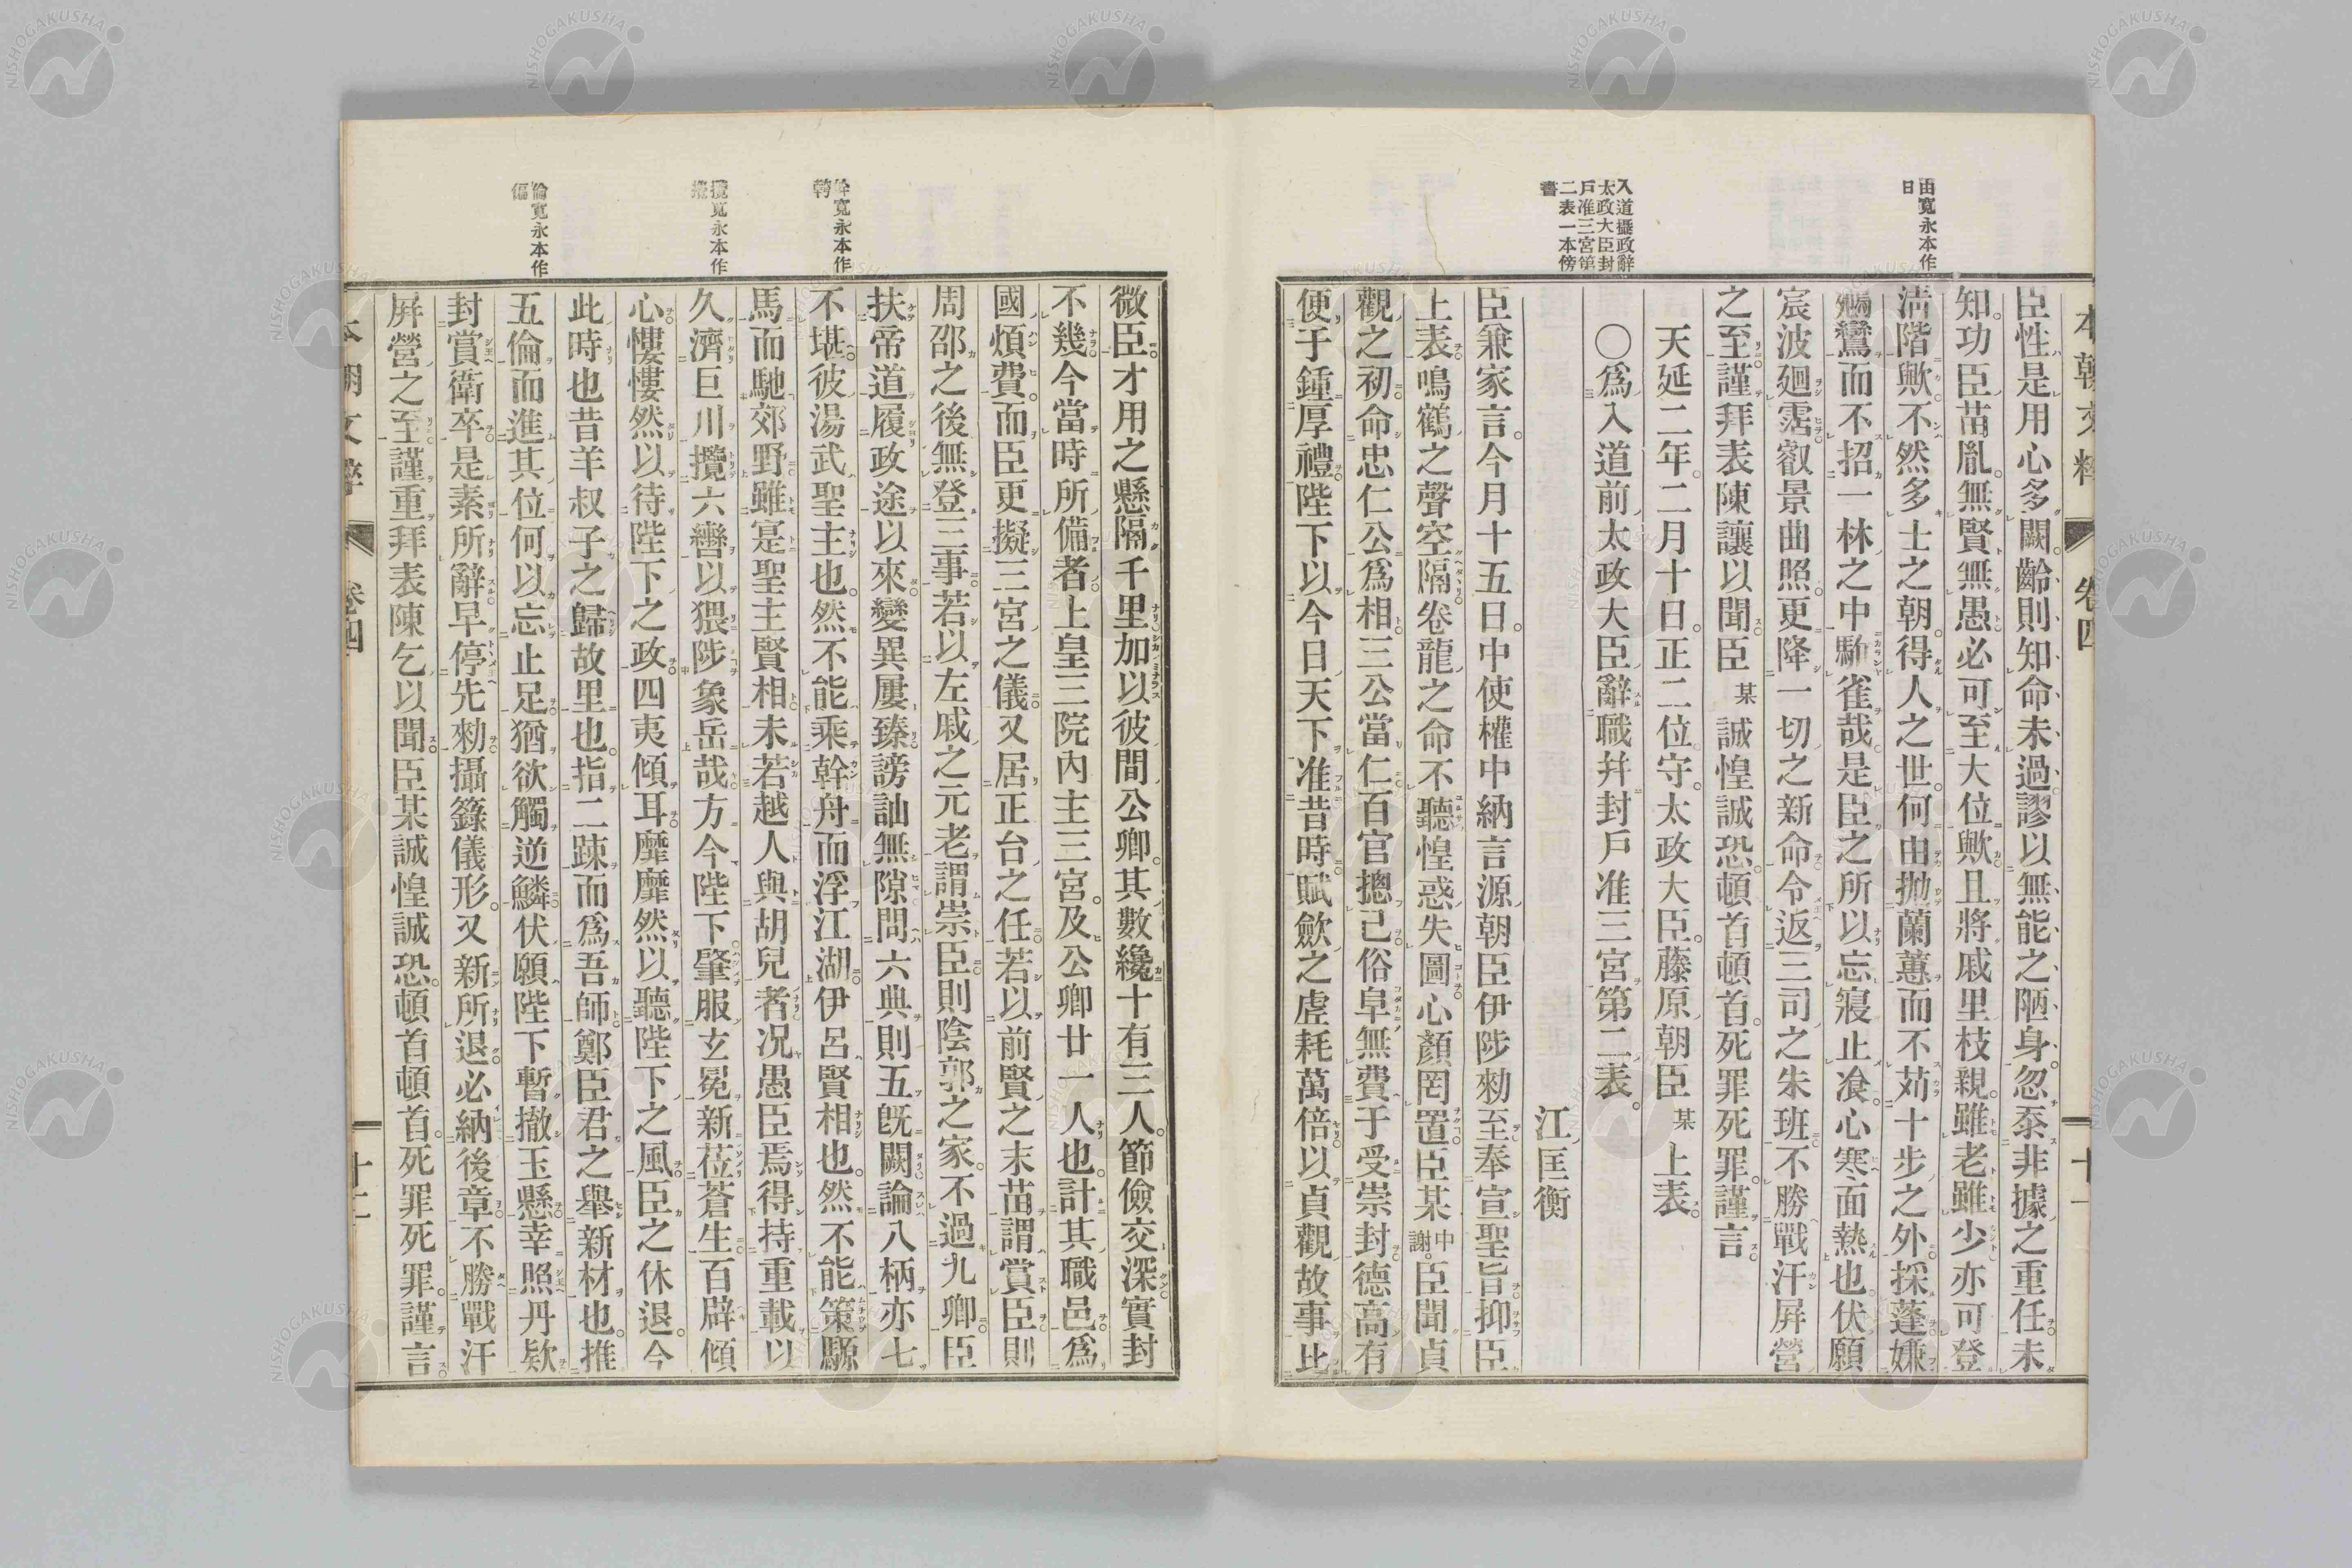 本朝文粹 卷四 十一
由寬永本作
日
入道攝政辭
太政大臣封
戶准三宮第
二表一本傍
書
臣性是用心多闕齡則知命未過謬以無能之陋身忽忝非據之重任未
知功臣苗胤無賢無愚必可至大位歟且將戚里枝親雖老雖少亦可登
淸階歟不然多士之朝得人之世何由抛蘭蕙而不茹十步之外採蓬嫌
鵷鸞而不招一林之中馴雀哉是臣之所以忘寢止飡心寒面熱也伏願
宸波廻霑叡景曲照更降一切之新命令返三司之朱班不勝戰汗屛營
之至謹拜表陳讓以聞臣某誠惶誠恐頓首頓首死罪死罪謹言
天延二年二月十日正二位守太政大臣藤原朝臣某上表
〇爲入道前太政大臣辭職幷封戶准三宮第二表
江匡衡
臣兼家言今月十五日中使權中納言源朝臣伊陟勑至奉宣聖旨抑臣
上表鳴鶴之聲空隔卷龍之命不聽惶惑失圖心顏罔置臣某中謝臣聞貞
觀之初命忠仁公爲相三公當仁百官摠己俗阜無費于受崇封德高有
便于鍾厚禮陛下以今日天下准昔時賦斂之虛耗萬倍以貞觀故事比
幹寬永本作
幹
攬寬永本作
倫寬永本作
偏
微臣才用之懸隔千里加以彼間公卿其數纔十有三人節儉交深實封
不幾今當時所備者上皇三院內主三宮及公卿廿一人也計其職邑爲
國煩費而臣更擬三宮之儀又居正台之任若以前賢之末苗謂賞臣則
周邵之後無登三事若以左戚之元老謂崇臣則陰郭之家不過九卿臣
扶帝道履政途以來變異屢臻謗訕無隙問六典則五既闕論八柄亦七
不堪彼湯武聖主也然不能乘幹舟而浮江湖伊呂賢相也然不能策騵
馬而馳郊野雖寔聖主賢相未若越人與胡兒者况愚臣焉得持重載以
久濟巨川攬六轡以猥陟象岳哉方今陛下肇服玄冕新莅蒼生百辟傾
心慺慺然以待陛下之政四夷傾耳靡靡然以聽陛下之風臣之休退今
此時也昔羊叔子之歸故里也指二踈而爲吾師鄭臣君之舉新材也推
五倫而進其位何以忘止足猶欲觸逆鱗伏願陛下暫撤玉懸幸照丹欵
封賞衛卒是素所辭早停先勑攝籙儀形又新所退必納後章不勝戰汗
屛營之至謹重拜表陳乞以聞臣某誠惶誠恐頓首頓首死罪死罪謹言
本朝文粹 卷四 十二
NISHOGAKUSHA